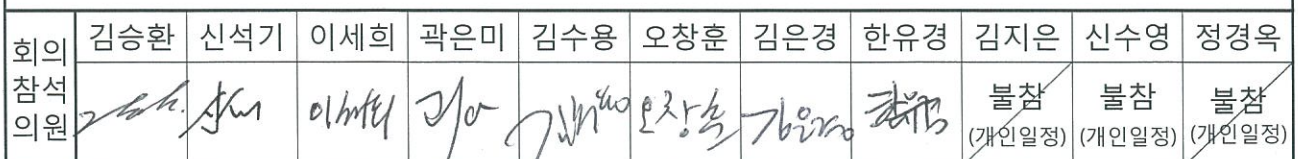 회의
참석
의원
김승환 신석기 이세희 곽은미 김수용 오창훈 김은경 한유경 김지은 신수영 정경옥
이세희 오창훈 김은경 한유경 불참 불참 불참
(개인일정) (개인일정) (개인일정)